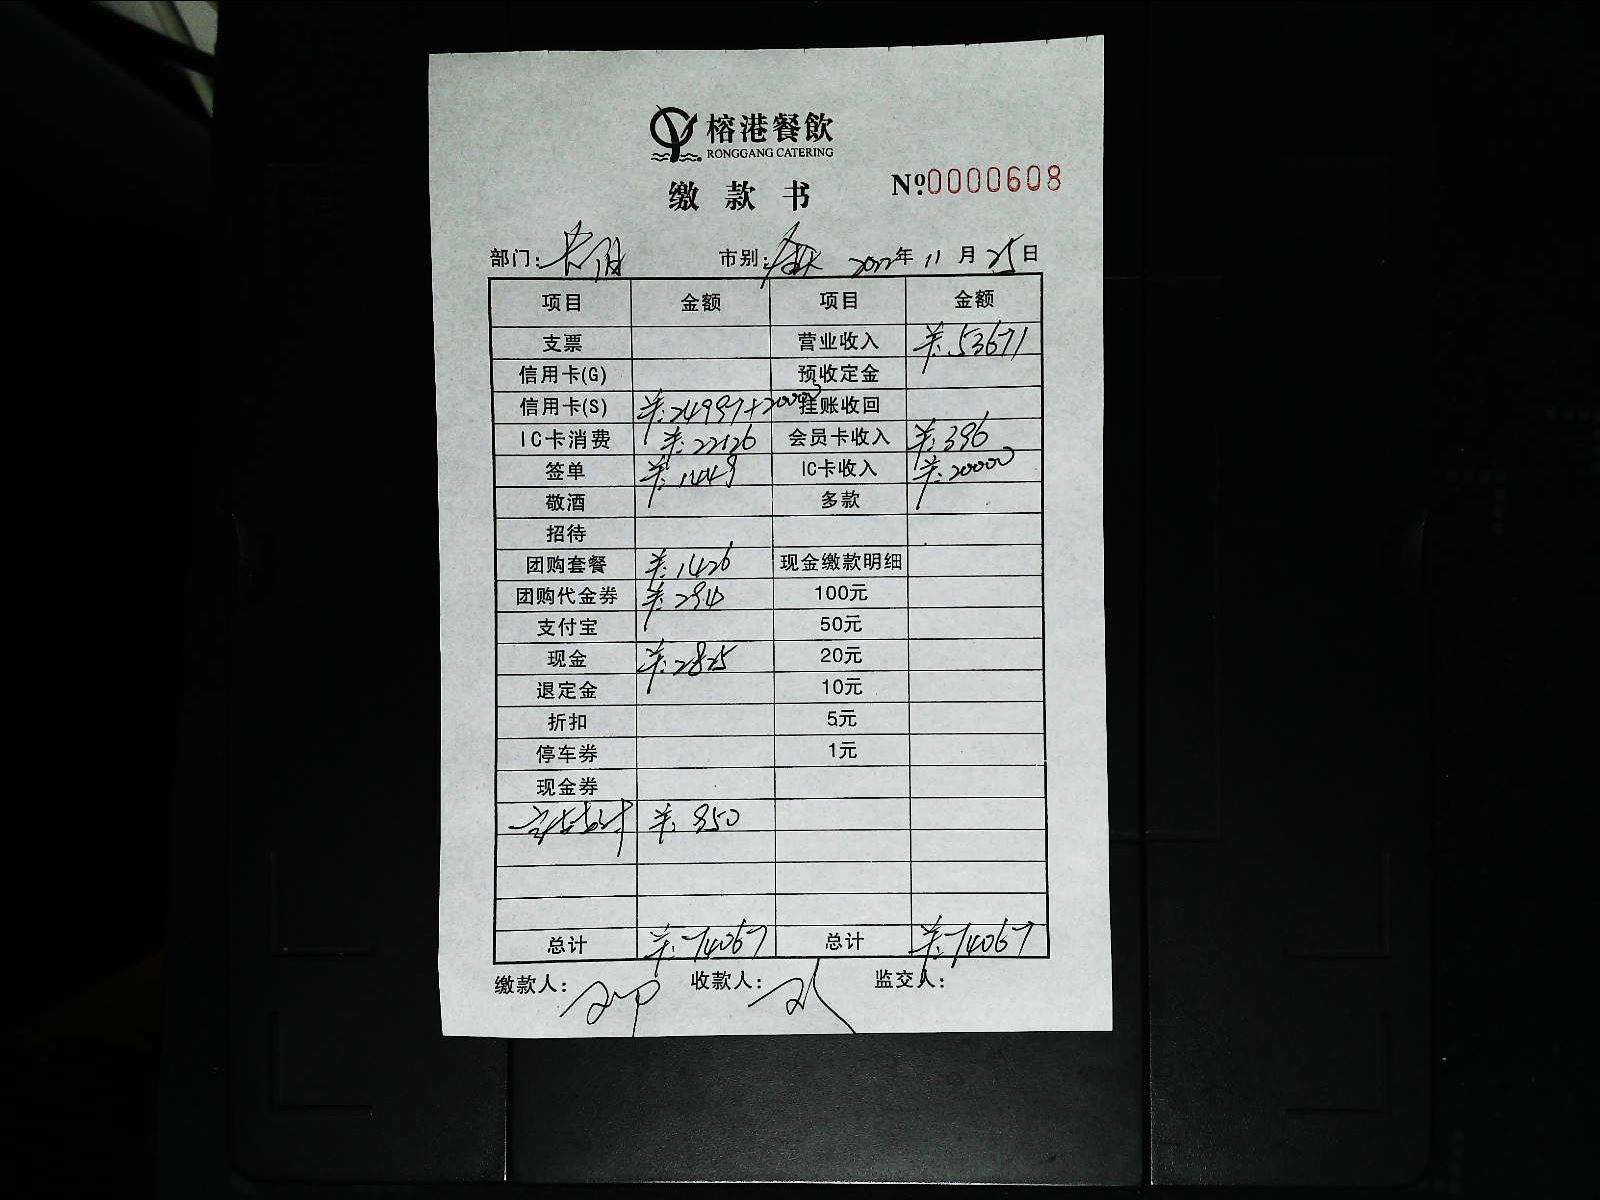 榕港餐飲
RONGGANG CATERING
缴款书
Nº:0000608
部门: 市别: 2022年11月25日
项目 金额 项目 金额
支票 营业收入 ¥:53671
信用卡(G) 预收定金
信用卡(S) ¥:24997+20000 挂账收回
IC卡消费 ¥:22126 会员卡收入 ¥:396
签单 ¥:1449 IC卡收入 ¥:20000
敬酒 多款
招待
团购套餐 ¥:1426 现金缴款明细
团购代金券 ¥:294 100元
支付宝 50元
现金 ¥:2825 20元
退定金 10元
折扣 5元
停车券 1元
现金券
¥:950
总计 ¥:74067 总计 ¥:74067
缴款人: 收款人: 监交人: